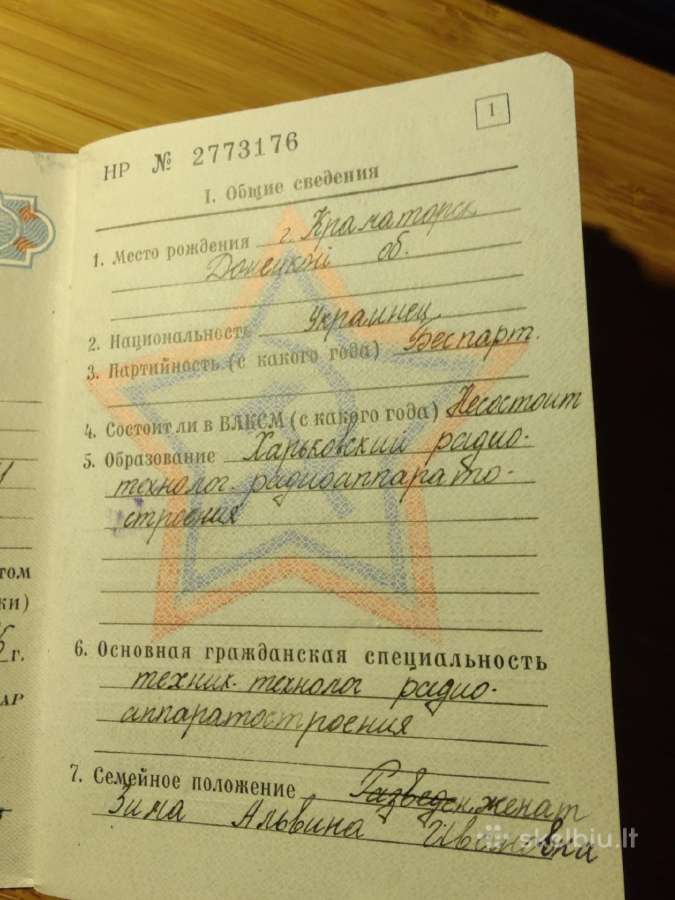 1
НР № 2773176
I. Общие сведения
1. Место рождения г. Краматорск
Донецкой об.
2. Национальность Украинец
3. Партийность (с какого года) Беспарт.
4. Состоит ли в ВЛКСМ (с какого года) Несостоит
5. Образование Харьковский радио-
технолог. радиоаппарато-
строения
том
ки)
г.
АР
6. Основная гражданская специальность
техник-технолог радио-
аппаратостроения
7. Семейное положение Разведен. женат
Зима Альвина Ивановна
skelbiu.lt